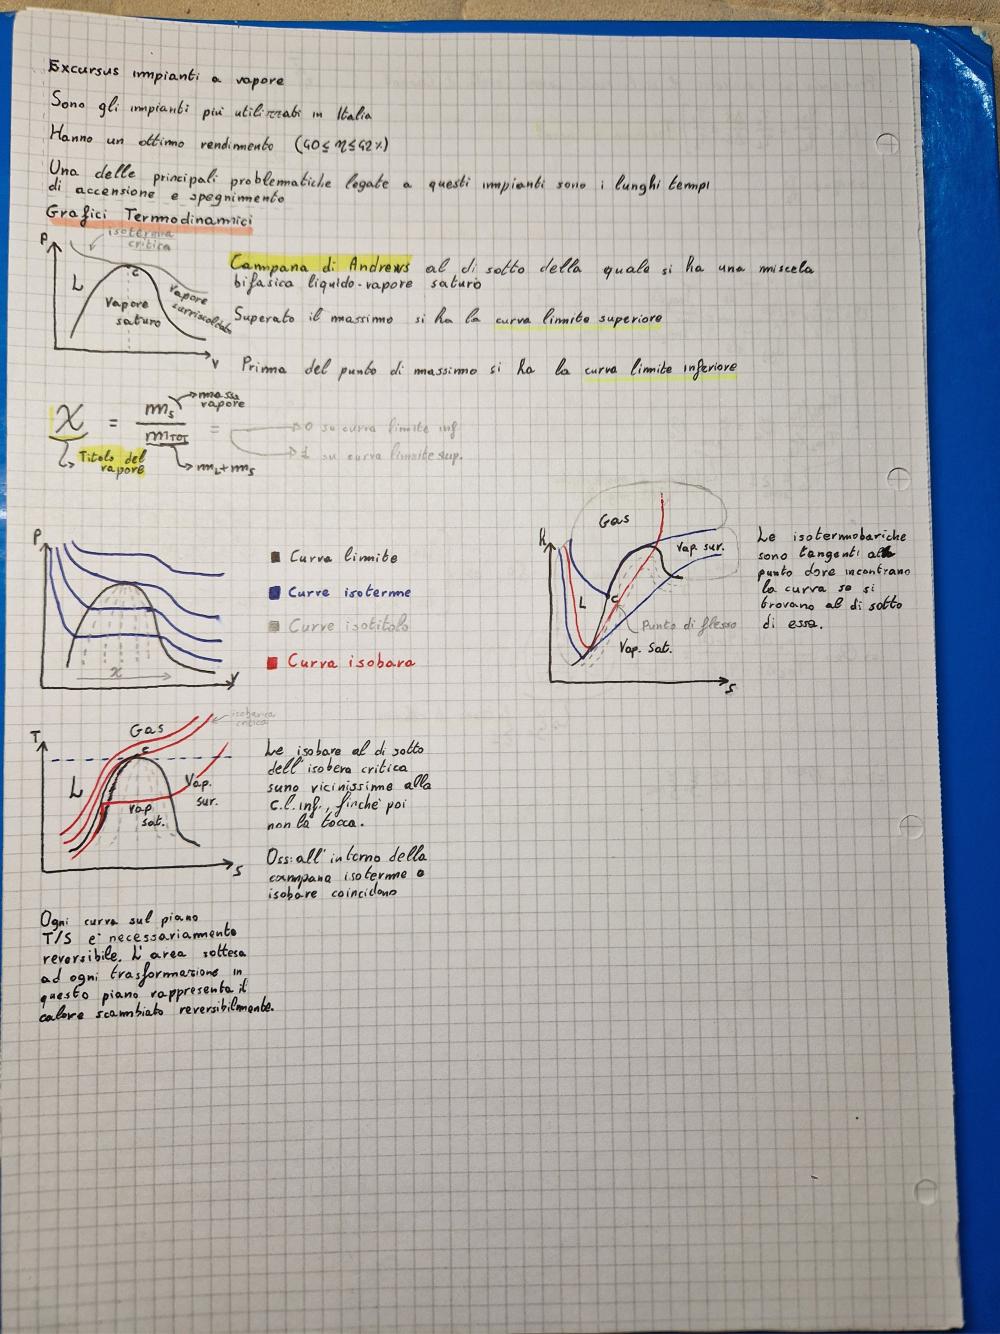 Excursus impianti a vapore
Sono gli impianti più utilizzati in Italia
Hanno un ottimo rendimento (40≤η≤42%)
Una delle principali problematiche legate a questi impianti sono i lunghi tempi
di accensione e spegnimento
Grafici Termodinamici
P
isoterma
critica
L
C
Vapore
saturo
Vapore
surriscaldato
V
Campana di Andrews al di sotto della quale si ha una miscela
bifasica liquido-vapore saturo
Superato il massimo si ha la curva limite superiore
Prima del punto di massimo si ha la curva limite inferiore
χ = ms / mTOT =
massa
vapore
Titolo del
vapore
mL+ms
0 su curva limite inf.
1 su curva limite sup.
P
x
V
Curva limite
Curve isoterme
Curve isotitolo
Curva isobara
h
Gas
Vap. sur.
L
C
Punto di flesso
Vap. sat.
S
Le isotermobariche
sono tangenti al
punto dove incontrano
la curva se si
trovano al di sotto
di essa.
T
Gas
isobarica
critica
C
L
Vap.
sur.
Vap.
sat.
S
Le isobare al di sotto
dell'isobera critica
suno vicinissime alla
C.l.inf., finché poi
non la tocca.
Oss:all'interno della
campana isoterme e
isobare coincidono
Ogni curva sul piano
T/S e' necessariamente
reversibile. L'area sottesa
ad ogni trasformazione in
questo piano rappresenta il
calore scambiato reversibilmente.